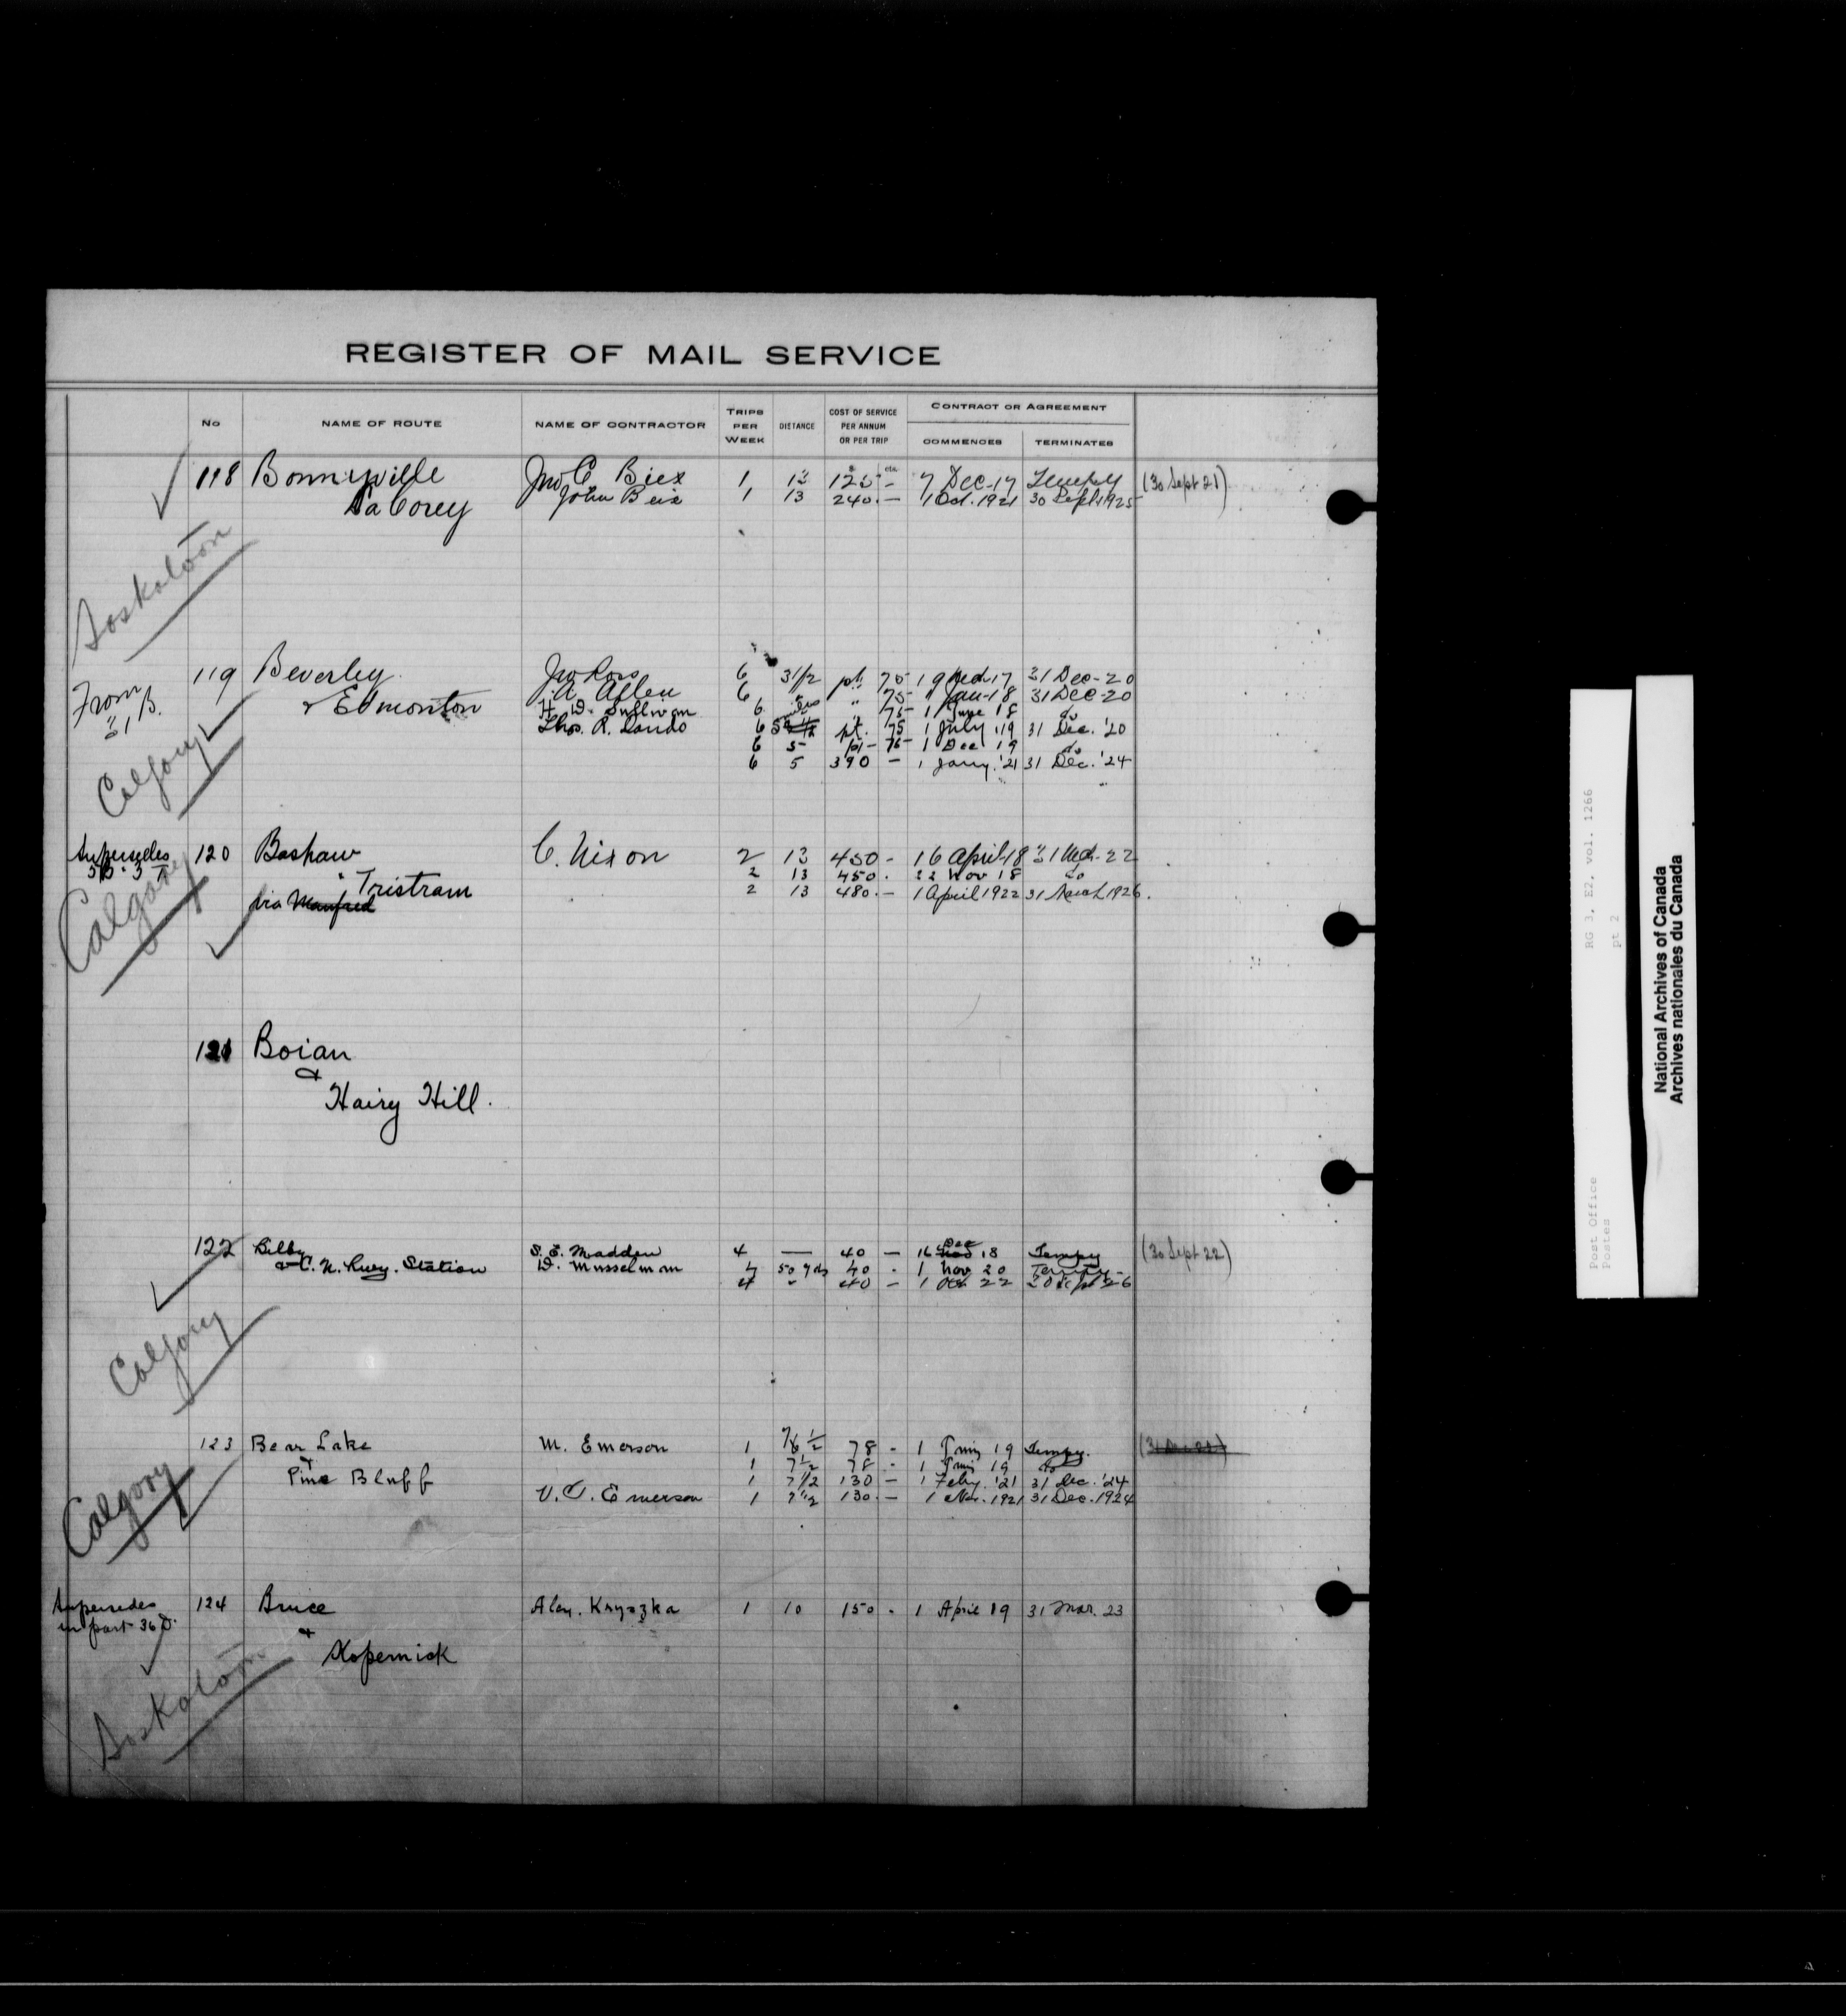 REGISTER OF MAIL SERVICE
No NAME OF ROUTE NAME OF CONTRACTOR TRIPS PER WEEK DISTANCE COST OF SERVICE PER ANNUM OR PER TRIP CONTRACT OR AGREEMENT
COMMENCES TERMINATES
118 Bonnyville Jno C Biex 1 13 125 - 7 Dec-17 Tempy (30 Sept 21)
La Corey John Beix 1 13 240.— 1 Oct. 1921 30 Sept. 1925
Saskatoon
119 Beverley Jno Ross 6 3 1/2 pt 75 19 17 31 Dec-20
From 31 B.
& Edmonton A. Allen 6 " 75 1 Jan-18 31 Dec-20
H. D. Sullivan 6 " 75 1 June 18 do
Thos. R. Lando 6 pt. 75 1 July '19 31 Dec. '20
6 5 pt - 75 1 Dec 19 do
6 5 390 - 1 Jany. '21 31 Dec. '24
Calgary
Supersedes
120 Bashaw C. Nixon 2 13 450 - 16 April-18 31 Mch-22
& Tristram 2 13 450. 22 Nov 18 do
via Manfred 2 13 480.— 1 April 1922 31 March 1926.
Calgary
121 Boian
&
Hairy Hill.
122 Bilby S. E. Madden 4 — 40 — 16 Dec 18 Tempy (30 Sept 22)
& C. N. Rwy. Station D. Musselman 4 50 yds 40 - 1 Nov 20 Tempy
4 " 40 — 1 Oct 22 Sept 26
Calgary
123 Bear Lake M. Emerson 1 7 1/2 78 - 1 19 Tempy.
& 1 7 1/2 78 - 1 19 do
Pine Bluff 1 7 1/2 130 — 1 Feby. '21 31 Dec. '24
V. C. Emerson 1 7 1/2 130.— 1 Nov. 1921 31 Dec. 1924
Calgary
Supersedes in part 36 D.
124 Bruce Alex. Knyozka 1 10 150 - 1 April 19 31 Mar. 23
&
Kopernick
Saskatoon
RG 3, E2, vol. 1266
pt 2
Post Office
Postes
National Archives of Canada
Archives nationales du Canada